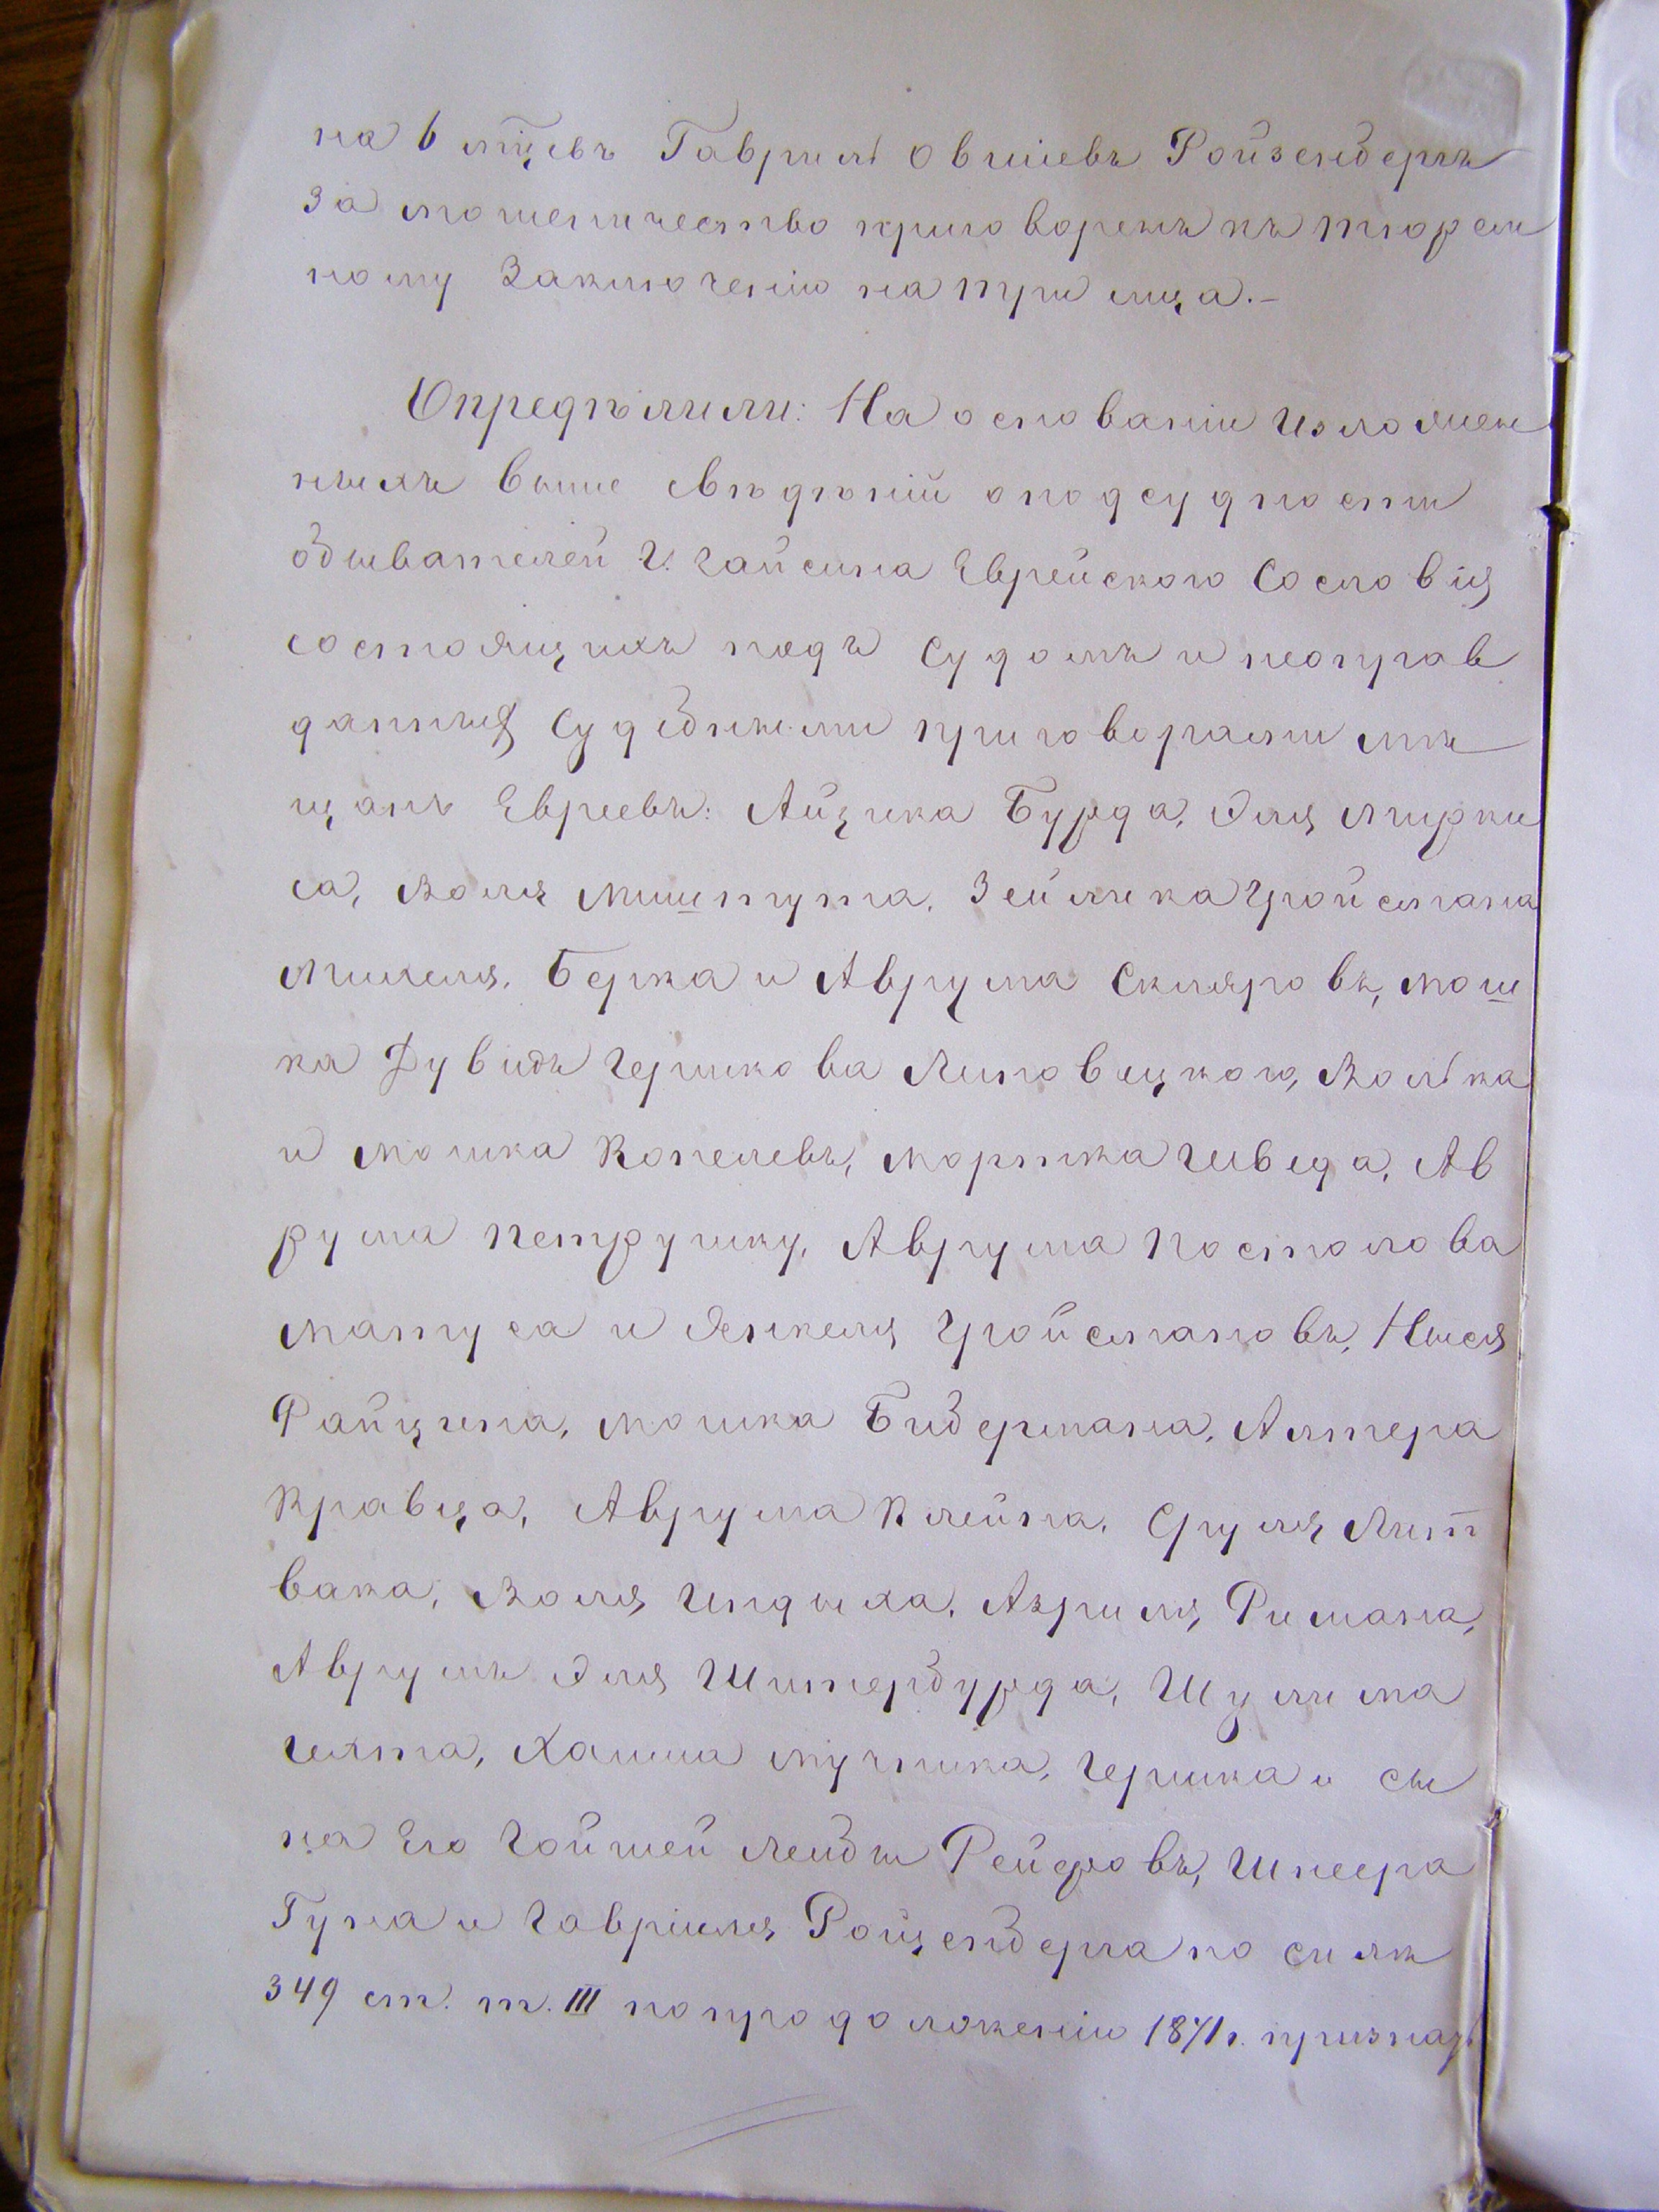 на 6 м͞цевъ Гаврилъ Овшiевъ Ройзенбергъ
за мошеничество приговоренъ къ тюрем
ному заключенiю на три м͞ца.–
Опредѣлили: На основанiи изложен
ныхъ выше свѣдѣнiй о подсудности
обывателей г. Гайсина Еврейского сословiя
состоящихъ подъ судомъ и неоправ
данныя судебными приговорами мѣ
щанъ Евреевъ: Айзика Бурда, Эля Мирки
са, Воля Мишпута, Зейлика Гройсмана
Михеля, Берка и Аврума Скляровъ, Мош
ка Дувидъ Гершкова Липовецкого, Волька
и Мошка Копелевъ, Мортка Шведа, Ав
рума Петрушку, Аврума Постолова
Матуса и Янкеля Гройсмановъ, Нысля
Файнгина, Мошка Бидермана, Алтера
Кравца, Аврума Клейна, Сруля Лит
вака, Воля Индыха, Азриля Римана,
Аврумъ Эля Шитербурда, Шулима
Гехта, Хаима Мучника, Гершка и сы
на его Гойшей Лейбы Рейфовъ, Шпеера
Гуна и Гаврiиля Ройзенберга по силѣ
349 ст. т. III по продолженiю 1871 г. признать